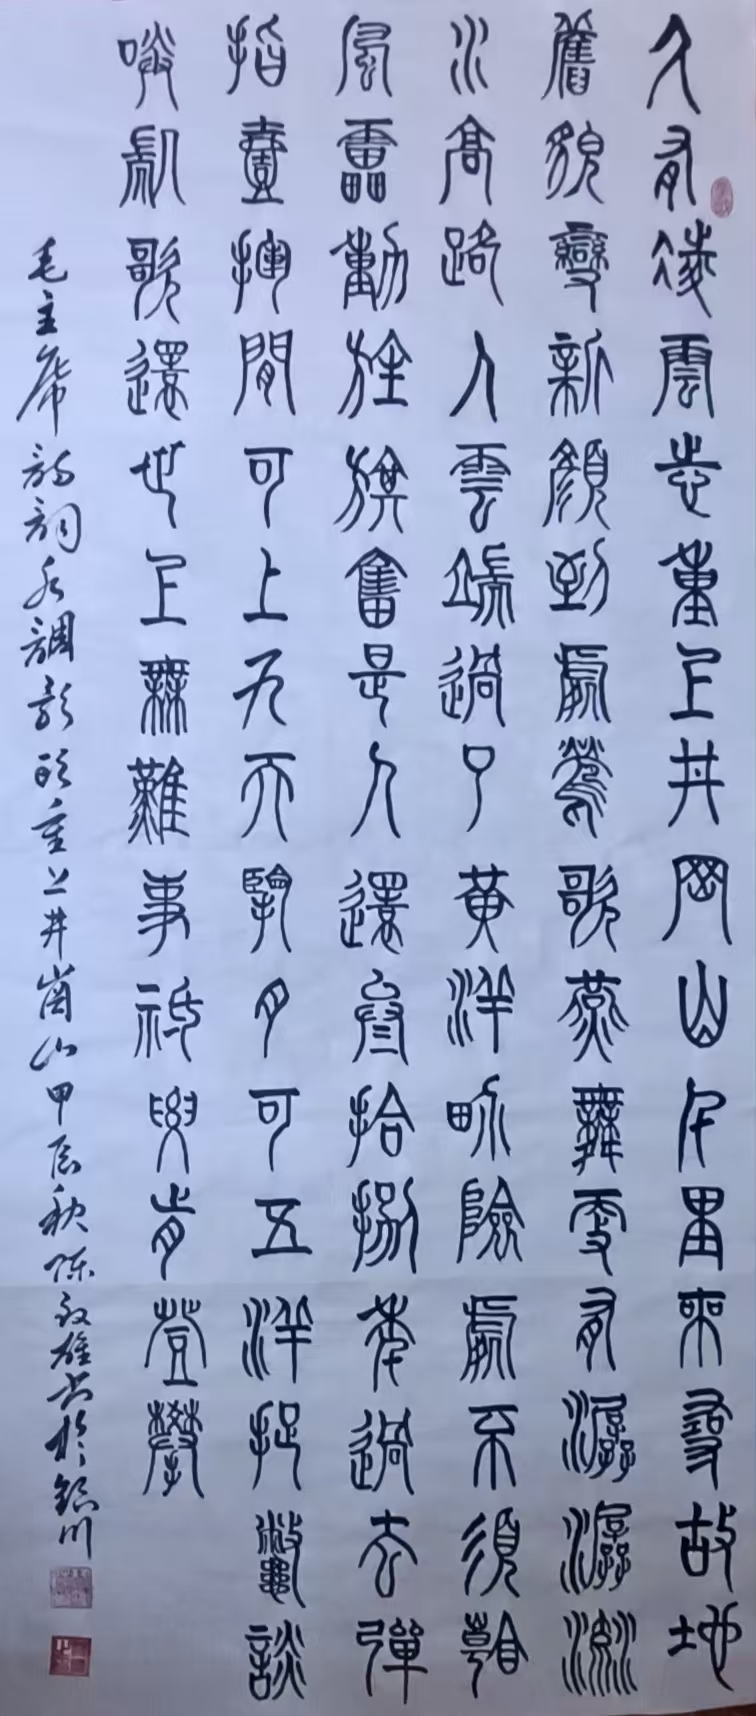 久有凌雲志重上井岡山千里來尋故地
舊貌變新顔到處鶯歌燕舞更有潺潺流
水高路入雲端過了黄洋界險處不須看
風雷動旌旗奮是人還叁拾捌年過去彈
指壹揮間可上九天擥月可五洋捉鱉談
咲凱歌還世上無難事祇要肯登攀
毛主席詩詞水調歌頭重上井崗山甲辰秋陳雄书於銀川